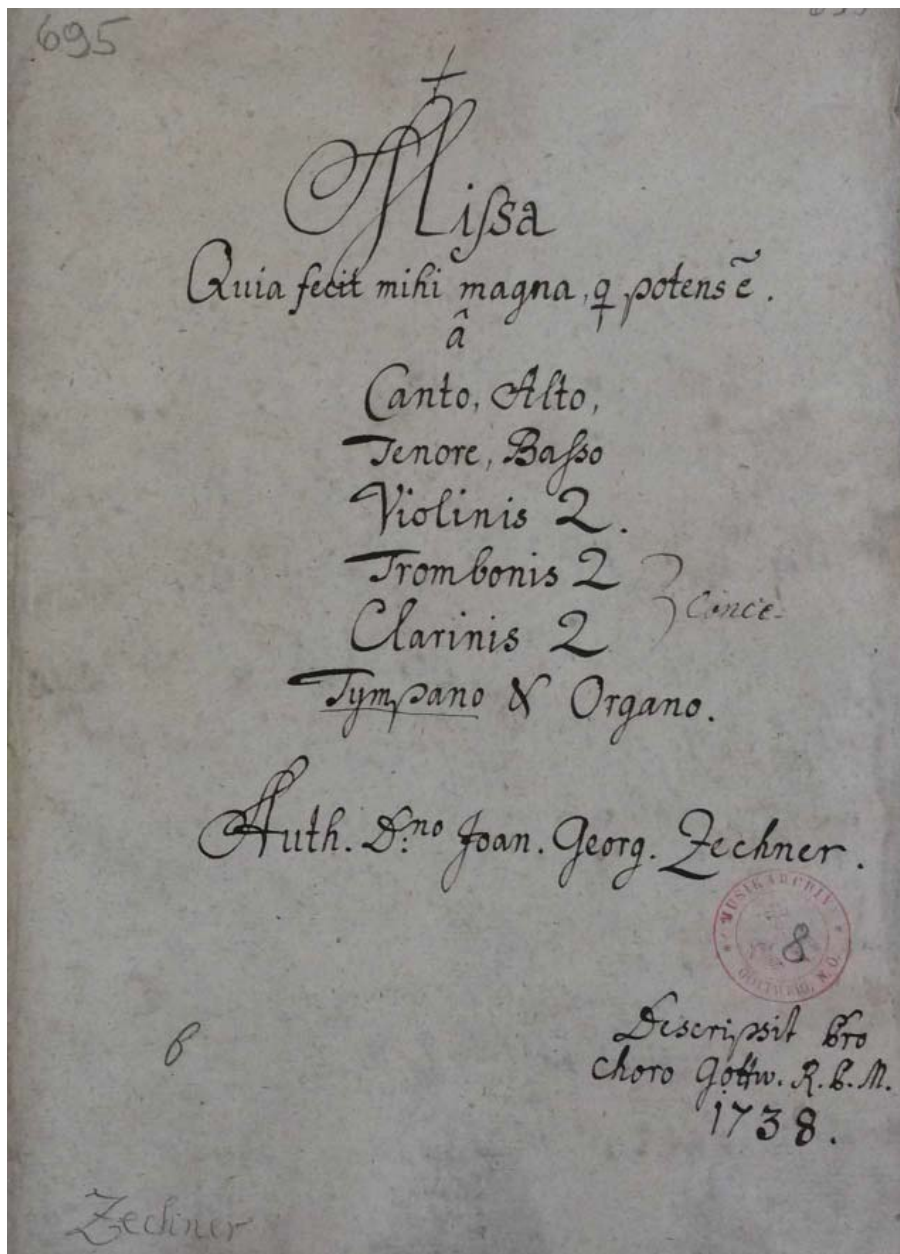 695
Missa
Quia fecit mihi magna, q potens ē.
â
Canto, Alto,
Tenore, Basso
Violinis 2.
Trombonis 2
Conce.
Clarinis 2
Tympano & Organo.
Auth. D:no Joan. Georg. Zechner.
MUSIKARCHIV
8
GÖTTWEIG, N. Ö.
Descripsit pro
choro Gottw. R. P. M.
1738.
Zechner